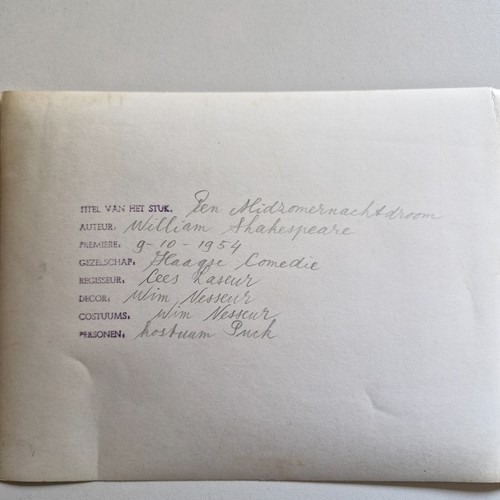 TITEL VAN HET STUK. Een Midzomernachtdroom
AUTEUR: William Shakespeare
PREMIÈRE: 9-10-1954
GEZELSCHAP: Haagse Comedie
REGISSEUR: Cees Laseur
DECOR: Wim Vesseur
COSTUUMS: Wim Vesseur
PERSONEN: kostuum Puck